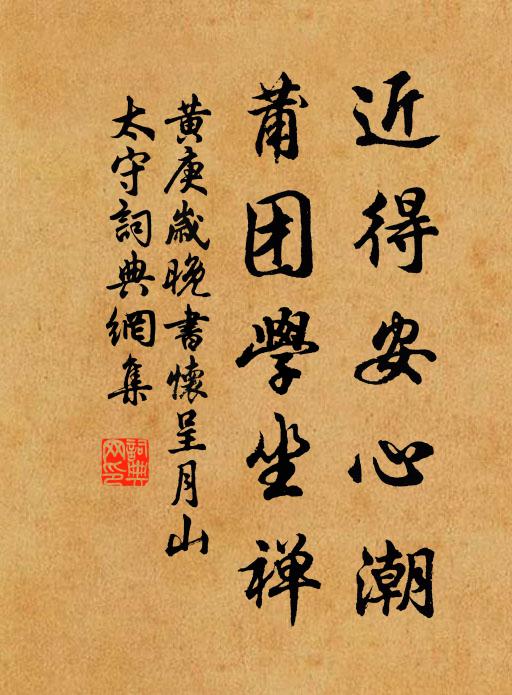 近得安心潮
莆团學坐禅
黄庚歲晚書懷呈月山
太守詞典網集
詞典
网印